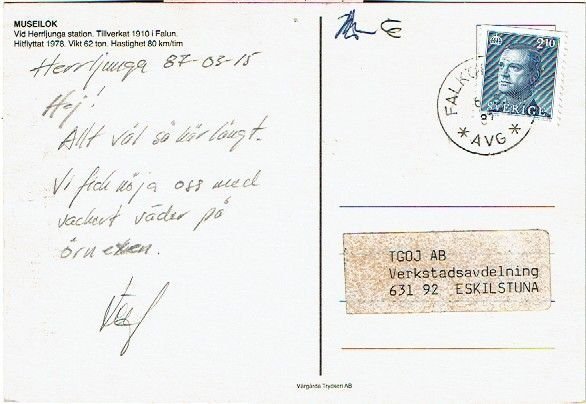 MUSEILOK
Vid Herrljunga station. Tillverkat 1910 i Falun.
Hitflyttat 1978. Vikt 62 ton. Hastighet 80 km/tim
Herrljunga 87-03-15
Hej!
Allt väl så här långt.
Vi fick nöja oss med
vackert väder på
210
SVERIGE
FALKÖ
* AVG *
TGOJ AB
Verkstadsavdelning
631 92 ESKILSTUNA
Vårgårda Tryckeri AB